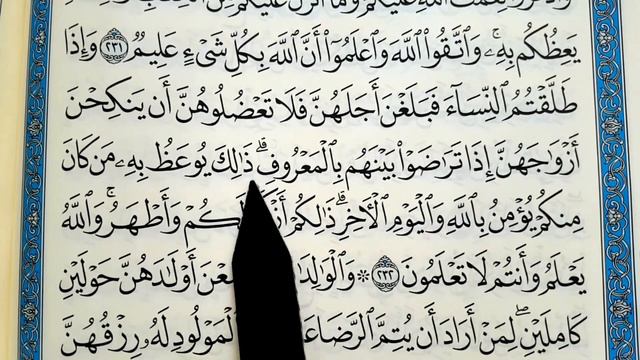 يَعِظُكُم بِهِۦۚ وَٱتَّقُوا۟ ٱللَّهَ وَٱعْلَمُوٓا۟ أَنَّ ٱللَّهَ بِكُلِّ شَىْءٍ عَلِيمٌ ٢٣١ وَإِذَا
طَلَّقْتُمُ ٱلنِّسَآءَ فَبَلَغْنَ أَجَلَهُنَّ فَلَا تَعْضُلُوهُنَّ أَن يَنكِحْنَ
أَزْوَٰجَهُنَّ إِذَا تَرَٰضَوْا۟ بَيْنَهُم بِٱلْمَعْرُوفِۗ ذَٰلِكَ يُوعَظُ بِهِۦ مَن كَانَ
مِنكُمْ يُؤْمِنُ بِٱللَّهِ وَٱلْيَوْمِ ٱلْـَٔاخِرِۗ ذَٰلِكُمْ وَأَطْهَرُۚ وَٱللَّهُ
يَعْلَمُ وَأَنتُمْ لَا تَعْلَمُونَ ٢٣٢ ۞ أَوْلَٰدَهُنَّ حَوْلَيْنِ
كَامِلَيْنِۖ لِمَنْ أَرَادَ أَن يُتِمَّ ٱلرَّضَاعَ ٱلْمَوْلُودِ لَهُۥ رِزْقُهُنَّ